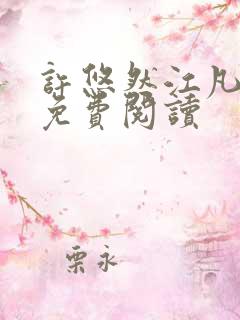 許悠然江凡
免費閱讀
栗永